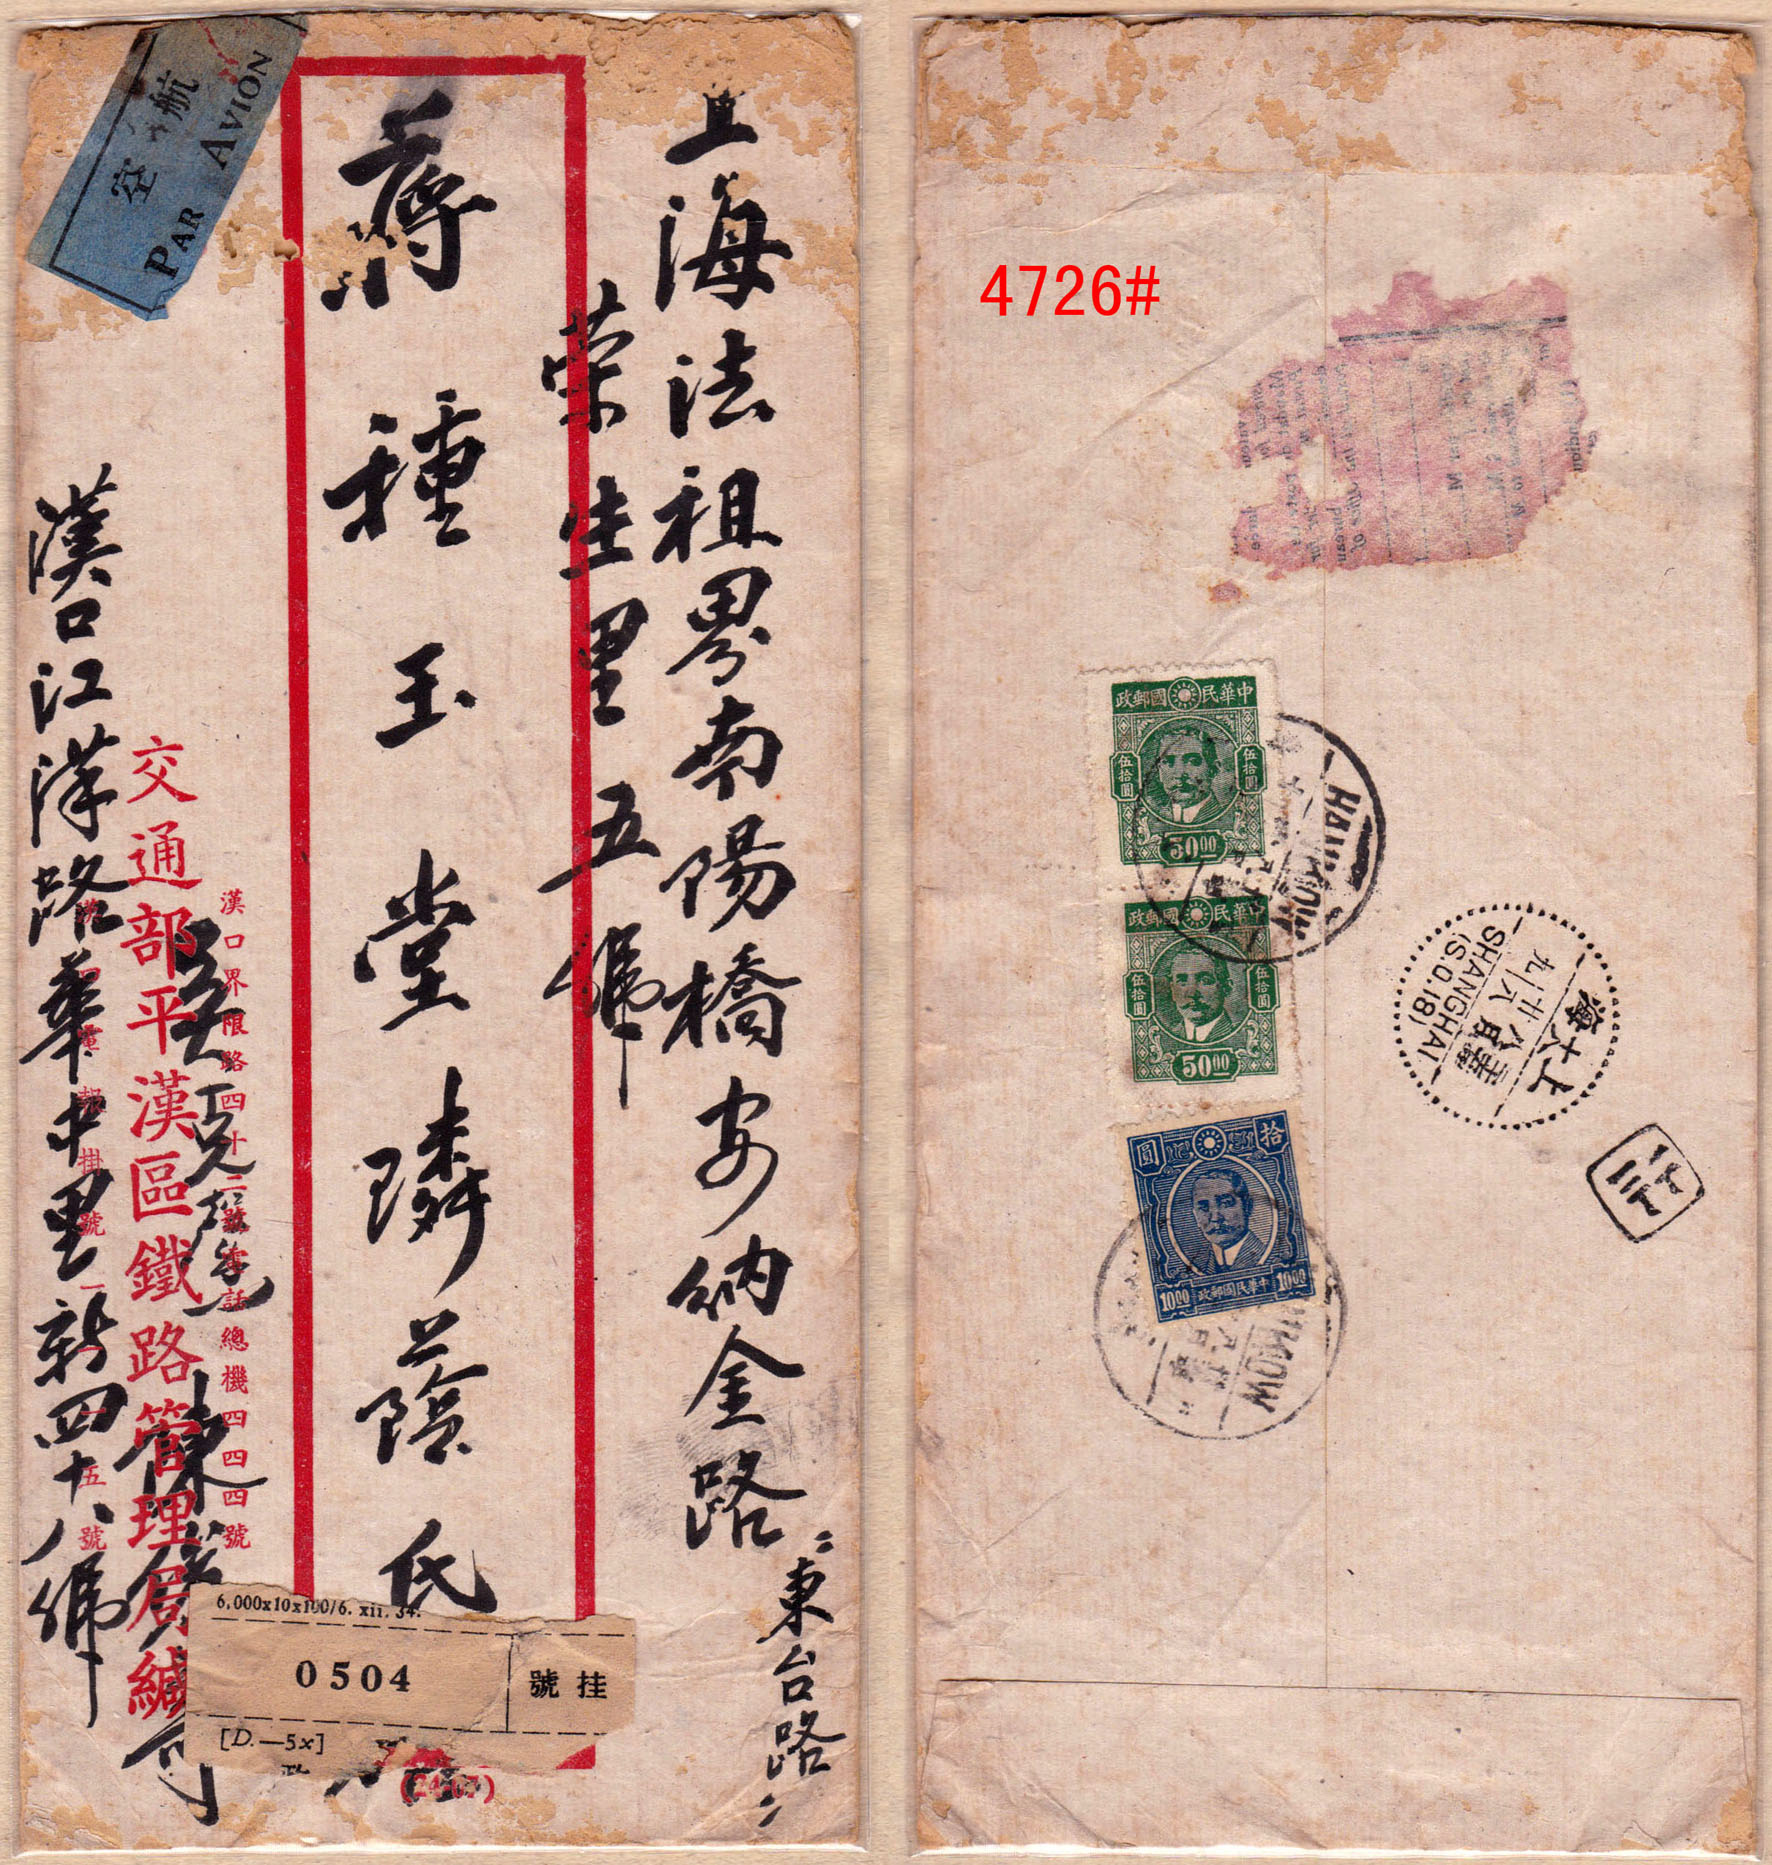 航空
PAR AVION
上海法租界南陽橋安納金路
東台路
榮生里五號
蔣種玉堂隣蔭氏
漢口界限路四十二號電話總機四四四號
交通部平漢區鐵路管理局緘
報掛號
五號
漢口江漢路華中里新四十八號
6,000x10x100/6. xii. 34.
0504
號挂
[D.—5x]
4726#
政郵國民華中
伍拾圓
伍拾圓
50 00
HANKOW
政郵國民華中
伍拾圓
伍拾圓
50 00
圓
拾
10 00
政郵國民華中
10 00
HANKOW
上大海
SHANGHAI
(S.O.18)